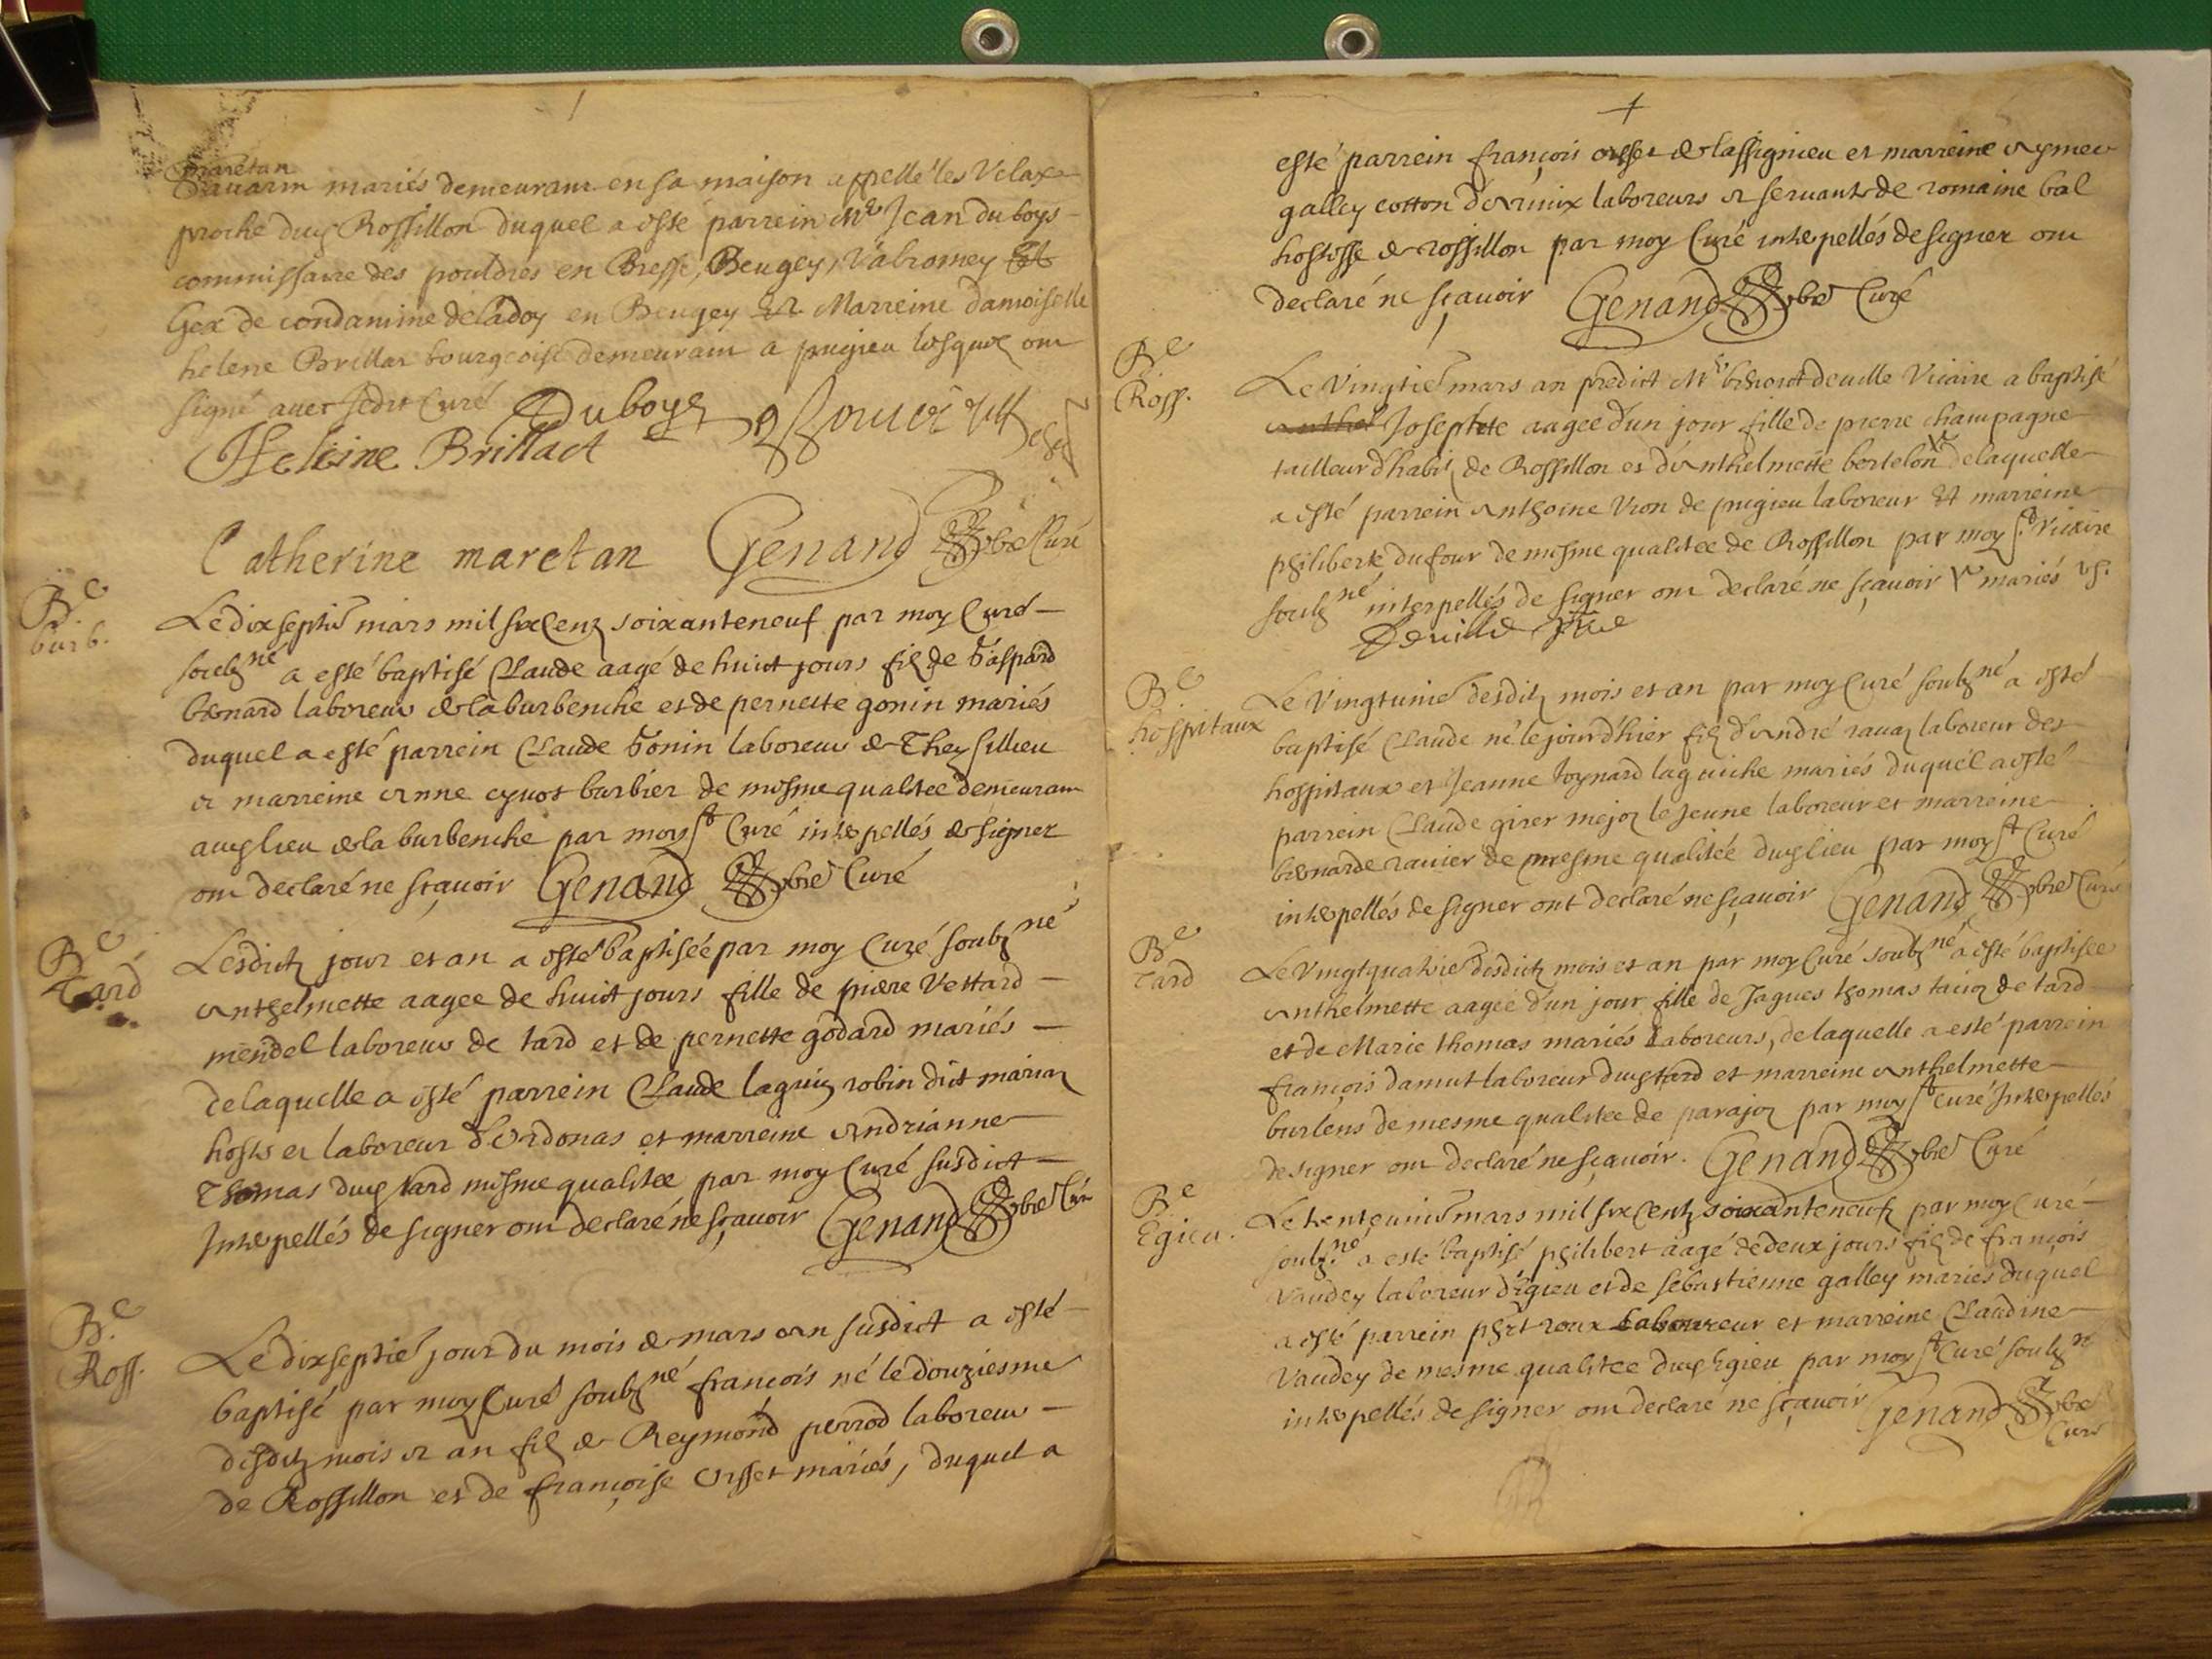 maretan
Sauarin mariés demeurant en sa maison appellé les Velaz
proche dud Rossillon duquel a esté parrein Mre Jean du boys
commissaire des pouldres en Bresse, Beugey, Valromey Et
Gex de condamine deladoy en Beugey Et Marreine damoiselle
helene Brillat bourgeoise demeurant a pugieu lesquelz ont
signé auec ledit Curé Duboys
Heleine Brillact
Catherine maretan Genand pbre Curé
Be.
burb.
Le dixseptie mars mil six Centz soixanteneuf par moy Curé
soubzné a esté baptisé Claude aagé de huict jours filz de Gaspard
benard laboreur de la burbenche et de pernette gonin mariés
duquel a esté parrein Claude Gonin laboreur de Theysillieu
et marreine Anne cynot barbier de mesme qualitee demeurant
aud lieu de la burbenche par moy st Curé interpellés de signer
ont declaré ne sçauoir Genand pbre Curé
Be
Tard
Lesdictz jour et an a esté baptisée par moy Curé soubzné
Anthelmette aagee de huict jours fille de piere Vettard
mendel laboreur de tard et de pernette godard mariés
delaquelle a esté parrein Claude laguiz robin dict marian
hoste et laboreur d'Ordonas et marreine Andrianne
Thomas dud tard mesme qualitee par moy Curé susdict
Interpellés de signer ont declaré ne sçauoir Genand pbre Curé
Be.
Ross.
Le dixseptie jour du mois de mars an susdict a esté
baptisé par moy Curé soubzné françois né le douziesme
desditz mois et an filz de Reymond perrod laboreur
de Rossillon et de françoise Orsset mariés, duquel a
esté parrein françois orsset de lassignieu et marreine Aymee
galley cotton d'Armix laboreurs et seruante de romaine bal
hostesse de rossillon par moy Curé interpellés de signer ont
declaré ne sçauoir Genand pbre Curé
Be
Ross.
Le Vingtie mars an predict Mre benoict deuille Viccaire a baptisé
Josephte aagee d'un jour fille de pierre champagne
tailleur d'habitz de Rossillon et d'Anthelmette bertelon delaquelle
a esté parrein Anthoine Vion de pugieu laboreur Et marreine
philiberte dufour de mesme qualitee de Rossillon par moy st Vicaire
soubzné interpellés de signer ont declaré ne sçauoir mariés
Deuille Vicre
Be
hospitaux
Le Vingtunie desditz mois et an par moy Curé soubzné a esté
baptisé Claude né le jourd'hier filz d'André rauaz laboreur des
hospitaux et Jeanne Joynard laguiche mariés duquel a esté
parrein Claude girer mejoz le Jeune laboreur et marreine
benarde rauier de mesme qualitée dud lieu par moy st Curé
interpellés de signer ont declaré ne sçauoir Genand pbre Curé
Be
Tard
Le Vingtquatrie desdictz mois et an par moy Curé soubzné a esté baptisee
Anthelmette aagée d'un jour fille de Jaques thomas tauoz de tard
et de Marie thomas mariés Laboreurs, delaquelle a esté parrein
françois damut laboreur dud tard et marreine Anthelmette
burlens de mesme qualitee de parajoz par moy st Curé Interpellés
de signer ont declaré ne sçauoir. Genand pbre Curé
Be
Egieu.
Le trenteunie mars mil six Centz soixanteneuf par moy Curé
soubz.né a esté baptisé philibert aagé de deux jours filz de françois
Vaudey laboreur d'Egieu et de sebastienne galley mariés duquel
a esté parrein phrt roux Laboureur et marreine Claudine
Vaudey de mesme qualitee dud Egieu par moy st Curé soubzné
interpellés de signer ont declaré ne sçauoir Genand pbre
Curé